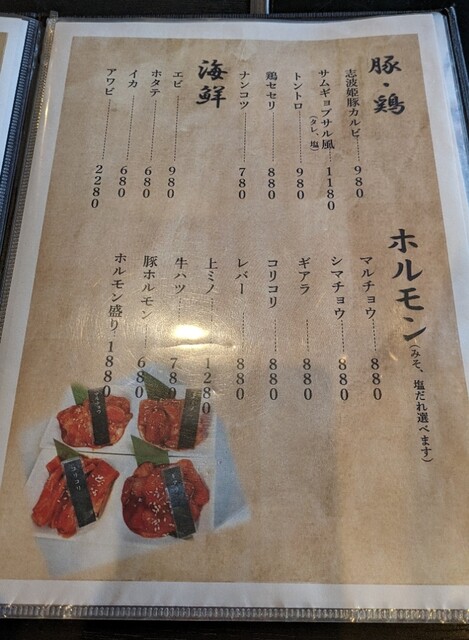 豚・鶏
志波姫豚カルビ……980
サムギョプサル風……1180
(タレ、塩)
トントロ……980
鶏セセリ……880
ナンコツ……780
海鮮
エビ……980
ホタテ……680
イカ……680
アワビ……2280
ホルモン(みそ、塩だれ選べます)
マルチョウ……880
シマチョウ……880
ギアラ……880
コリコリ……880
レバー……880
上ミノ……1280
牛ハツ……780
豚ホルモン……680
ホルモン盛り……1880
コリコリ